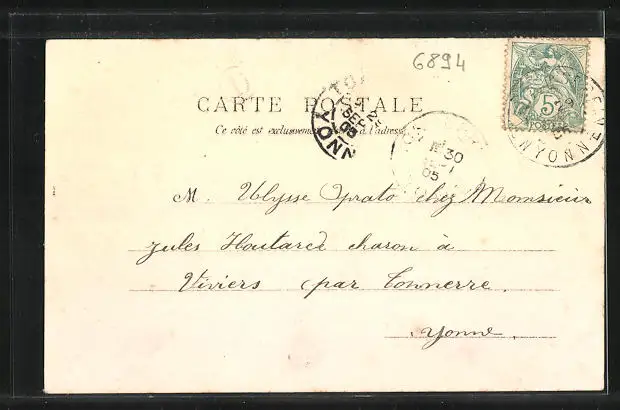 6894
CARTE POSTALE
Ce côté est exclusivement à l'adresse
5
POSTES
30
05
YONNE
M. Ulysse Prato chez Monsieur
Jules Houtarde charon à
Viviers (par Tonnerre.
Yonne.